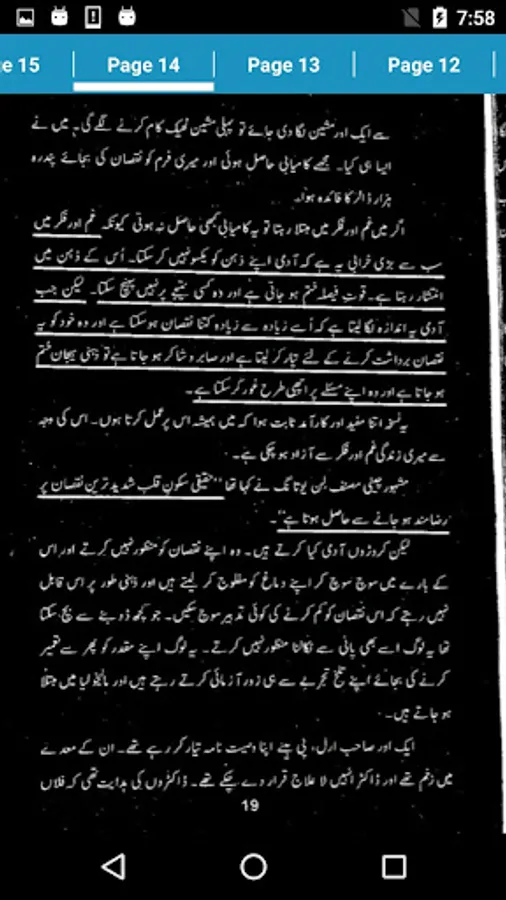 7:58
e 15
Page 14
Page 13
Page 12
سے ایک اور مشین لگا دی جائے تو پہلی مشین ٹھیک کام کرنے لگے گی۔ میں نے
ایسا ہی کیا۔ مجھے کامیابی حاصل ہوئی اور میری فرم کو نقصان کی بجائے پندرہ
ہزار ڈالر کا فائدہ ہوا۔
اگر میں غم اور فکر میں مبتلا رہتا تو یہ کامیابی کبھی حاصل نہ ہوتی کیونکہ غم اور فکر میں
سب سے بڑی خرابی یہ ہے کہ آدمی اپنے ذہن کو یکسو نہیں کر سکتا۔ اُس کے ذہن میں
انتشار رہتا ہے۔ قوتِ فیصلہ ختم ہو جاتی ہے اور وہ کسی نتیجے پر نہیں پہنچ سکتا۔ لیکن جب
آدمی یہ اندازہ لگا لیتا ہے کہ اُسے زیادہ سے زیادہ کتنا نقصان ہو سکتا ہے اور وہ خود کو یہ
نقصان برداشت کرنے کے لئے تیار کر لیتا ہے اور صابر و شاکر ہو جاتا ہے تو ذہنی ہیجان ختم
ہو جاتا ہے اور وہ اپنے مسئلے پر اچھی طرح غور کر سکتا ہے۔
یہ نسخہ اتنا مفید اور کارآمد ثابت ہوا کہ میں ہمیشہ اس پر عمل کرتا ہوں۔ اس کی وجہ
سے میری زندگی غم اور فکر سے آزاد ہو چکی ہے۔
مشہور چینی مصنف لن یوتانگ نے کہا تھا ''حقیقی سکونِ قلب شدید ترین نقصان پر
رضامند ہو جانے سے حاصل ہوتا ہے''۔
لیکن کروڑوں آدمی کیا کرتے ہیں۔ وہ اپنے نقصان کو منظور نہیں کرتے اور اس
کے بارے میں سوچ سوچ کر اپنے دماغ کو مفلوج کر لیتے ہیں اور ذہنی طور پر اس قابل
نہیں رہتے کہ اس نقصان کو کم کرنے کی کوئی تدبیر سوچ سکیں۔ جو کچھ ڈوبنے سے بچ سکتا
تھا یہ لوگ اسے بھی پانی سے نکالنا منظور نہیں کرتے۔ یہ لوگ اپنے مقدر کو پھر سے تعمیر
کرنے کی بجائے اپنے تلخ تجربے سے ہی زور آزمائی کرتے رہتے ہیں اور مالیخولیا میں مبتلا
ہو جاتے ہیں۔
ایک اور صاحب ارل، پی ہینے اپنا وصیت نامہ تیار کر رہے تھے۔ ان کے معدے
میں زخم تھے اور ڈاکٹر انہیں لا علاج قرار دے چکے تھے۔ ڈاکٹروں کی ہدایت تھی کہ فلاں
19